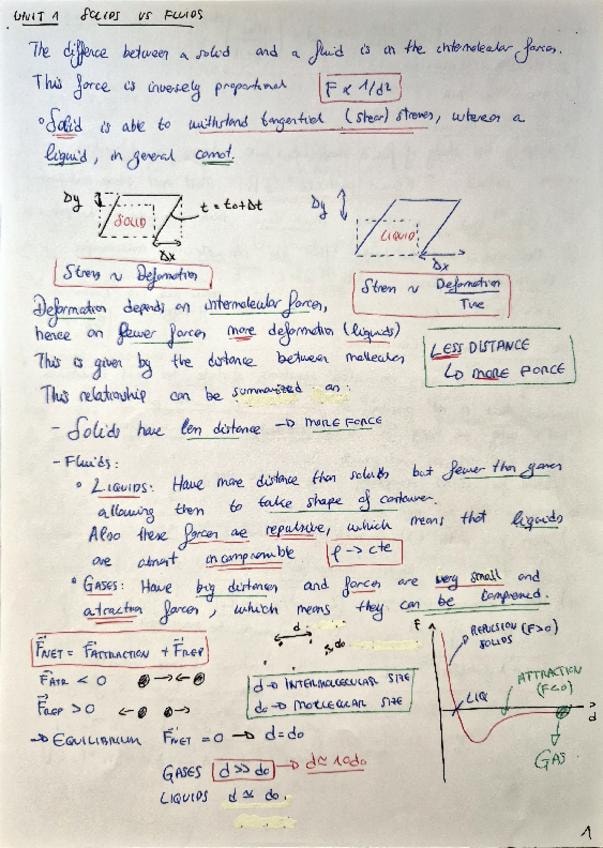 UNIT 1 SOLIDS VS FLUIDS
The diffence between a solid and a fluid is on the intermolecular forces.
This force is inversely proportional F ∝ 1/d²
° Solid is able to withstand tangential (shear) stresses, whereas a
liquid, in general cannot.
Δy SOLID t = t0+Δt Δx
Δy LIQUID Δx
Stress ~ Deformation
Stress ~ Deformation / Time
Deformation depends on intermolecular forces,
hence on fewer forces more deformation (liquids)
This is given by the distance between molecules
LESS DISTANCE
↳ MORE FORCE
This relationship can be summarized as:
- Solids have less distance → MORE FORCE
- Fluids:
° LIQUIDS: Have more distance than solids but fewer than gases
allowing them to take shape of container.
Also these forces are repulsive, which means that liquids
are almost incompressible ρ → cte
° GASES: Have big distances and forces are very small and
attraction forces, which means they can be compressed.
F NET = F ATTRACTION + F REP
F ATR < 0
F REP > 0
→ EQUILIBRIUM F NET = 0 → d = d0
GASES d >> d0 → d ≃ 10d0
LIQUIDS d ≃ d0.
d
d0
d → INTERMOLECULAR SIZE
d0 → MOLECULAR SIZE
F
REPULSION (F>0)
SOLIDS
ATTRACTION
(F<0)
LIQ
d
GAS
1